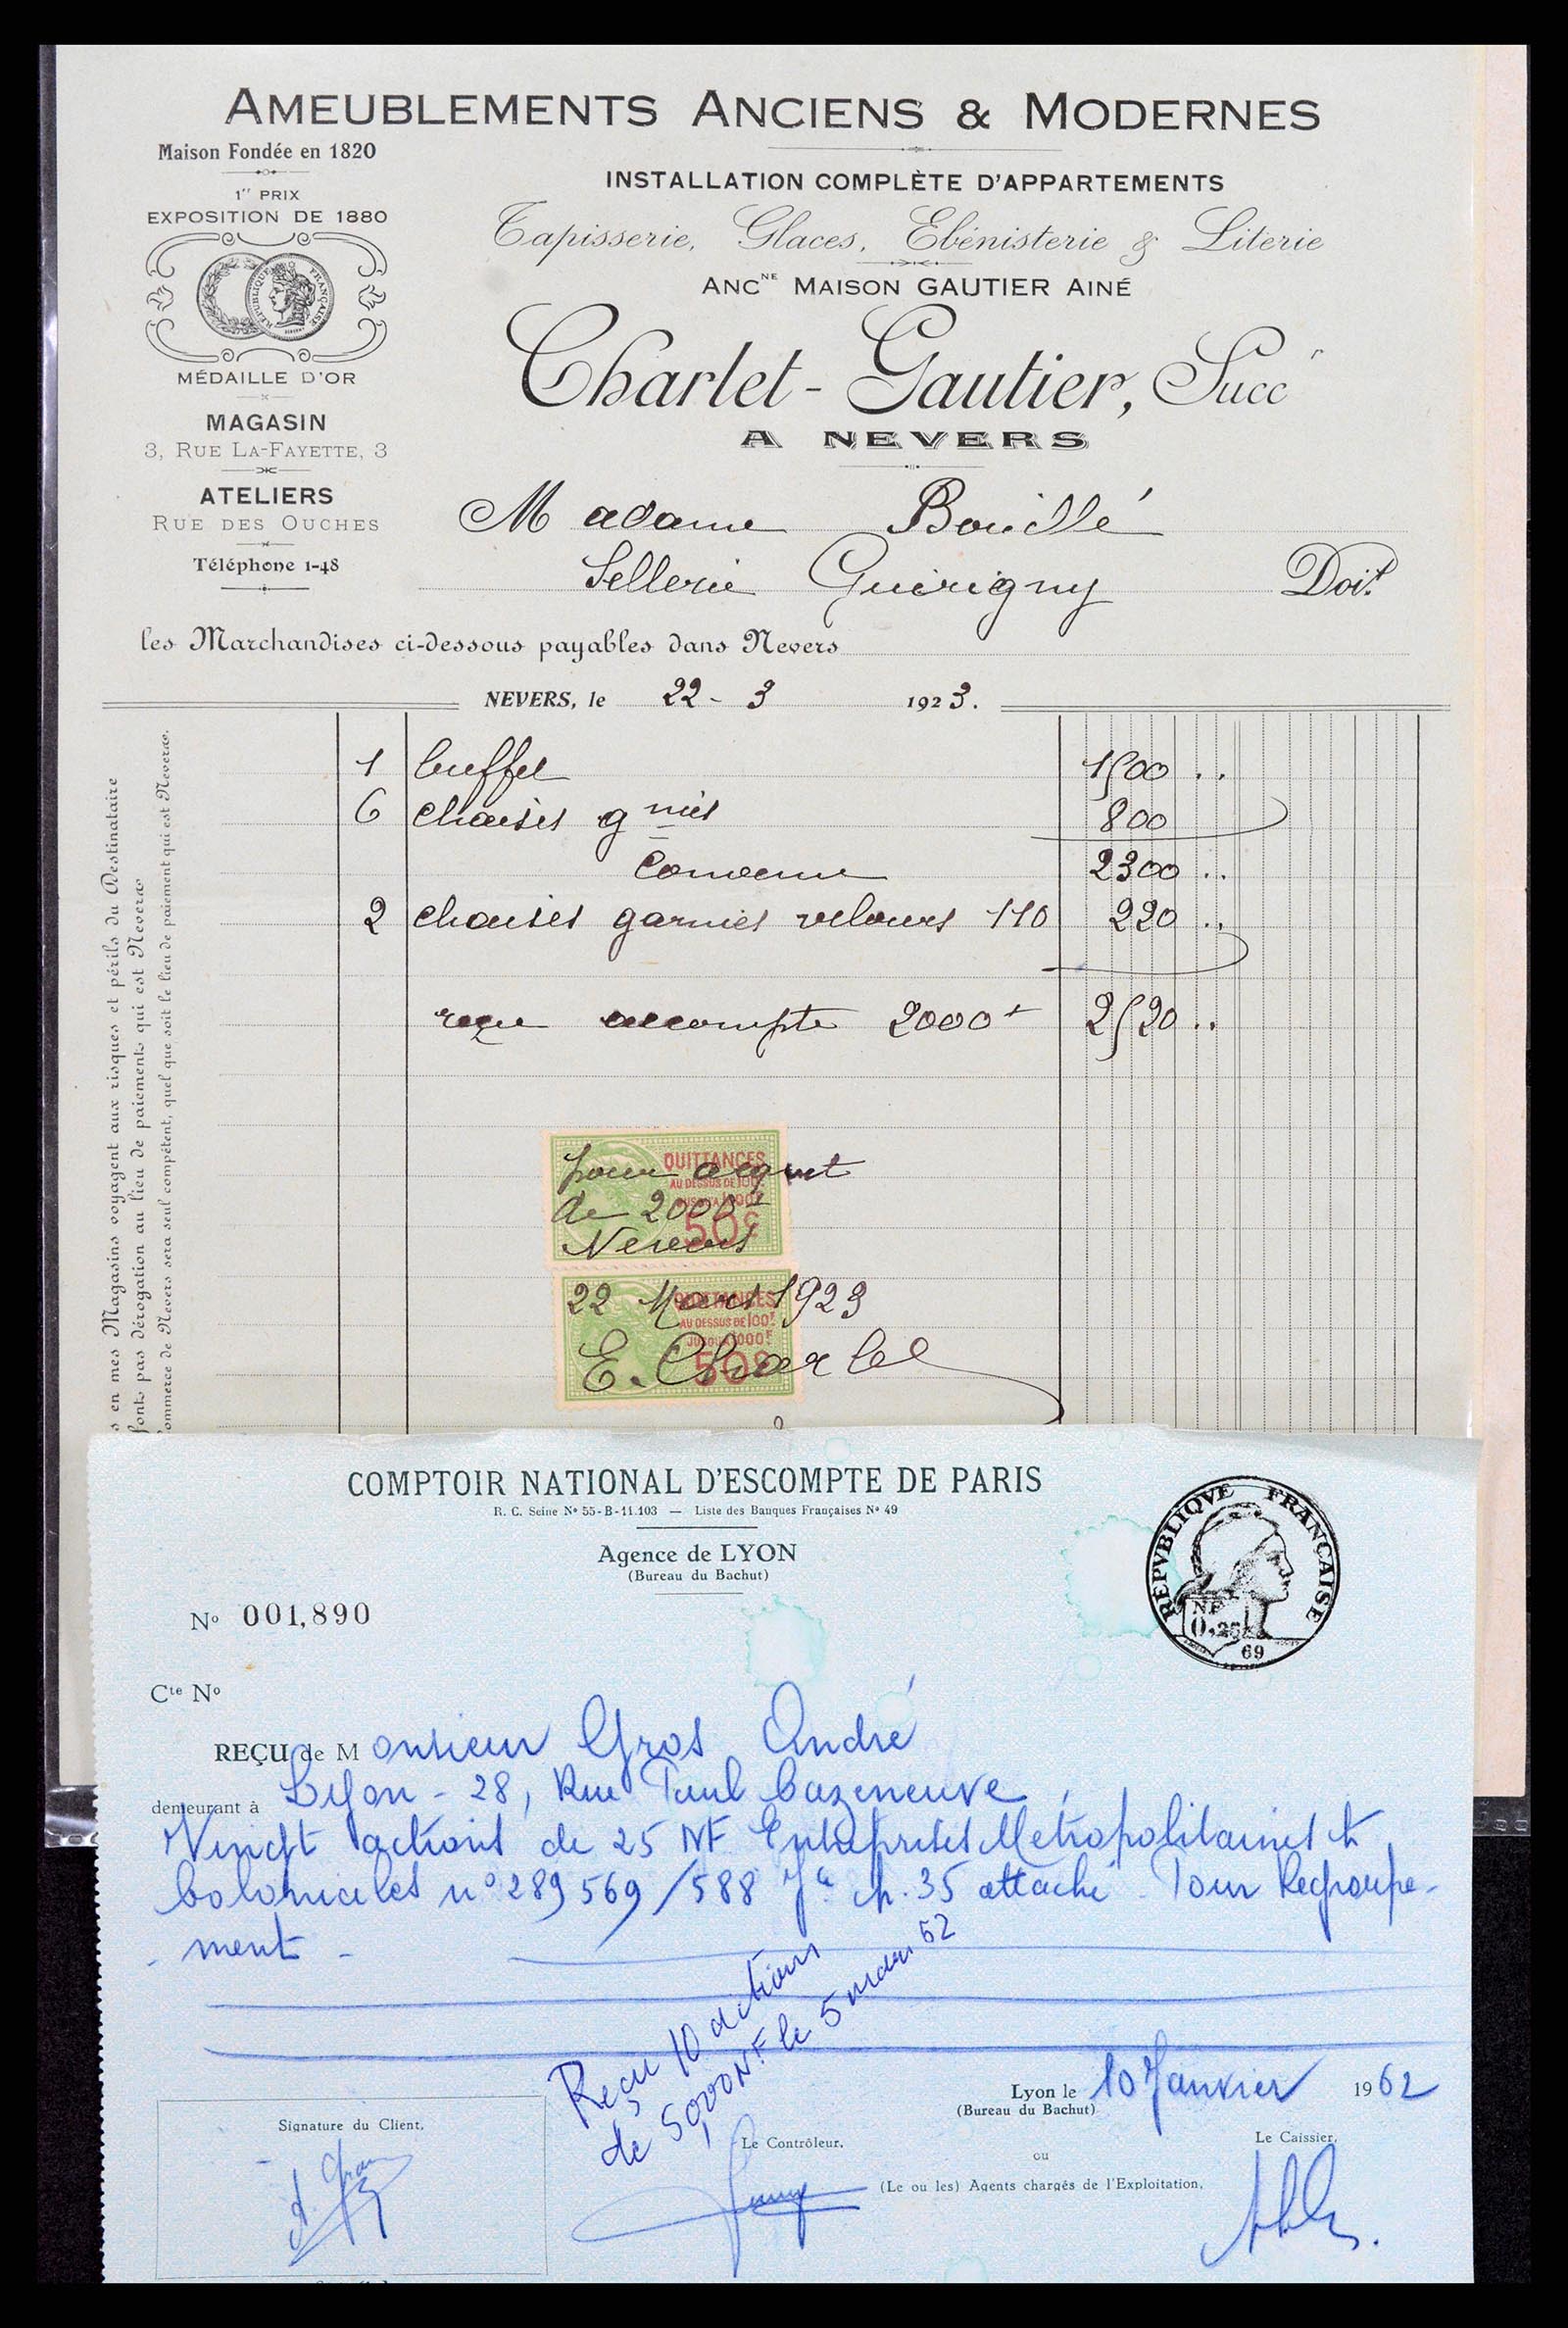 AMEUBLEMENTS ANCIENS & MODERNES
Maison Fondée en 1820
1er PRIX
EXPOSITION DE 1880
RÉPUBLIQUE FRANÇAISE
MÉDAILLE D'OR
MAGASIN
3, RUE LA-FAYETTE, 3
ATELIERS
RUE DES OUCHES
Téléphone 1-48
INSTALLATION COMPLÈTE D'APPARTEMENTS
Tapisserie, Glaces, Ebénisterie & Literie
ANCNE MAISON GAUTIER AINÉ
Charlet-Gautier, Succr
A NEVERS
Madame Bouillé
Sellerie Guérigny Doit
les Marchandises ci-dessous payables dans Nevers
NEVERS, le 22-3 1923.
s en mes Magasins voyagent aux risques et périls du Destinataire
font pas dérogation au lieu de paiement qui est Nevers
ommerce de Nevers sera seul compétent, quel que soit le lieu de paiement qui est Nevers.
1 buffet 1500 ..
6 chaises gnies 800
Convenu 2300 ..
2 chaises garnies velours 110 220 ..
reçu accompte 2000f 2520 ..
QUITTANCES
AU DESSUS DE 100F
JUSQU'A 1000F
50c
pour acquit
de 2000f
Nevers
QUITTANCES
AU DESSUS DE 100F
JUSQU'A 1000F
50c
22 Mars 1923
E. Charlet
COMPTOIR NATIONAL D'ESCOMPTE DE PARIS
R. C. Seine No 55-B-11.103 — Liste des Banques Françaises No 49
Agence de LYON
(Bureau du Bachut)
REPVBLIQVE FRANÇAISE
NF
0,25
69
No 001,890
Cte No
REÇU de Monsieur Gros André
demeurant à Lyon - 28, Rue Paul Cazeneuve
Vingt actions de 25 NF Entreprises Metropolitaines &
Coloniales no 289569/588 Jce ch. 35 attaché Pour Regroupe-
- ment -
Reçu 10 actions
de 50,00 NF le 5 mars 62
Lyon le 10 Janvier 1962
(Bureau du Bachut)
Signature du Client,
Le Contrôleur,
ou
Le Caissier,
(Le ou les) Agents chargés de l'Exploitation,